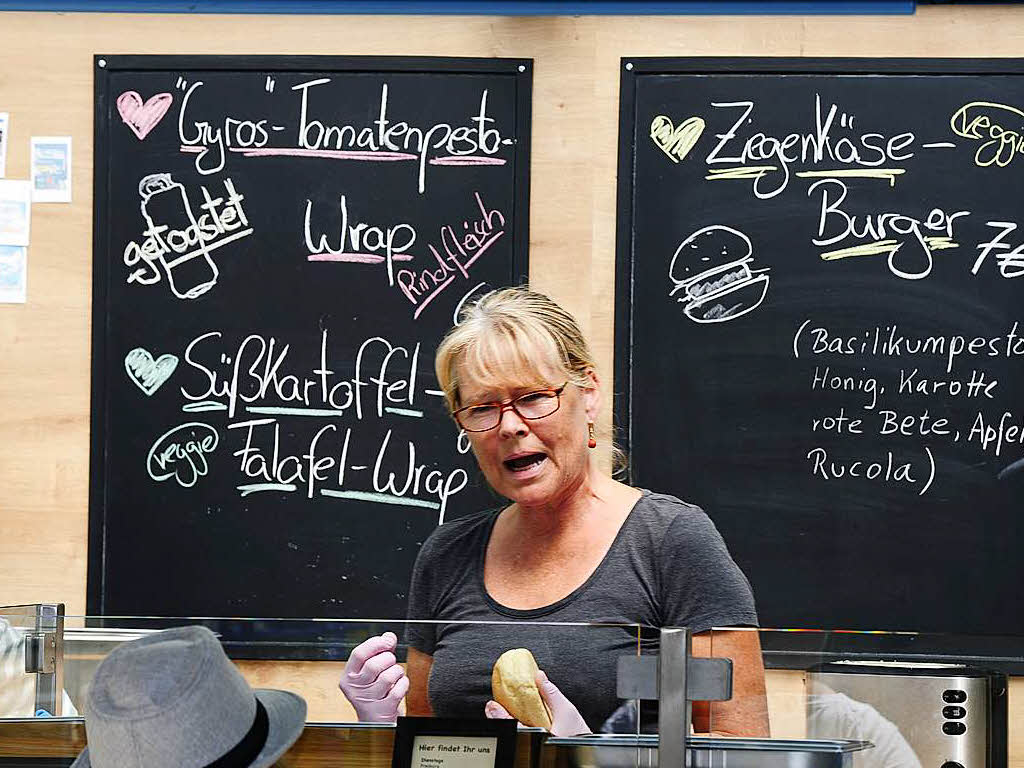 "Gyros"-Tomatenpesto-
Wrap
getoastet
Rindfleisch
Süßkartoffel-
Falafel-Wrap
veggie
Ziegenkäse-
veggie
Burger
7€
(Basilikumpesto
Honig, Karotte
rote Bete, Apfel
Rucola)
Hier findet Ihr uns
Dienstags